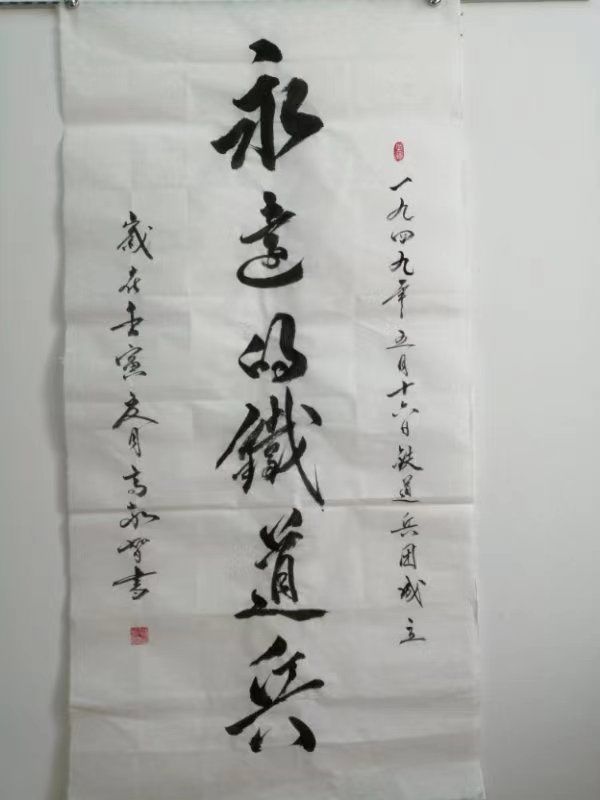 一九四九年五月十六日铁道兵团成立
永遠的鐵道兵
歲在壬寅夏月高智书